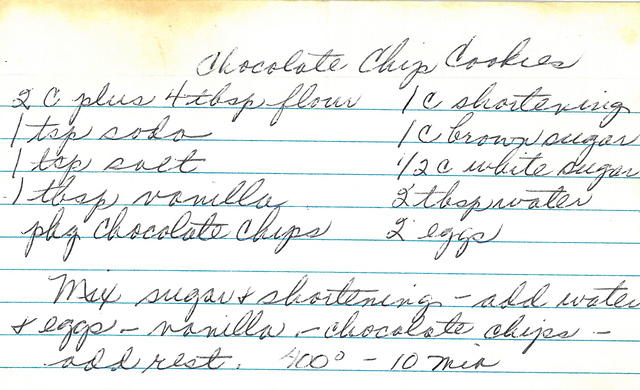 Chocolate Chip Cookies
2 c plus 4 tbsp flour 1 c shortening
1 tsp soda 1 c brown sugar
1 tsp salt 1/2 c white sugar
1 tbsp vanilla 2 tbsp water
pkg chocolate chips 2 eggs
Mix sugar & shortening - add water
& eggs - vanilla - chocolate chips -
add rest. 400° - 10 min